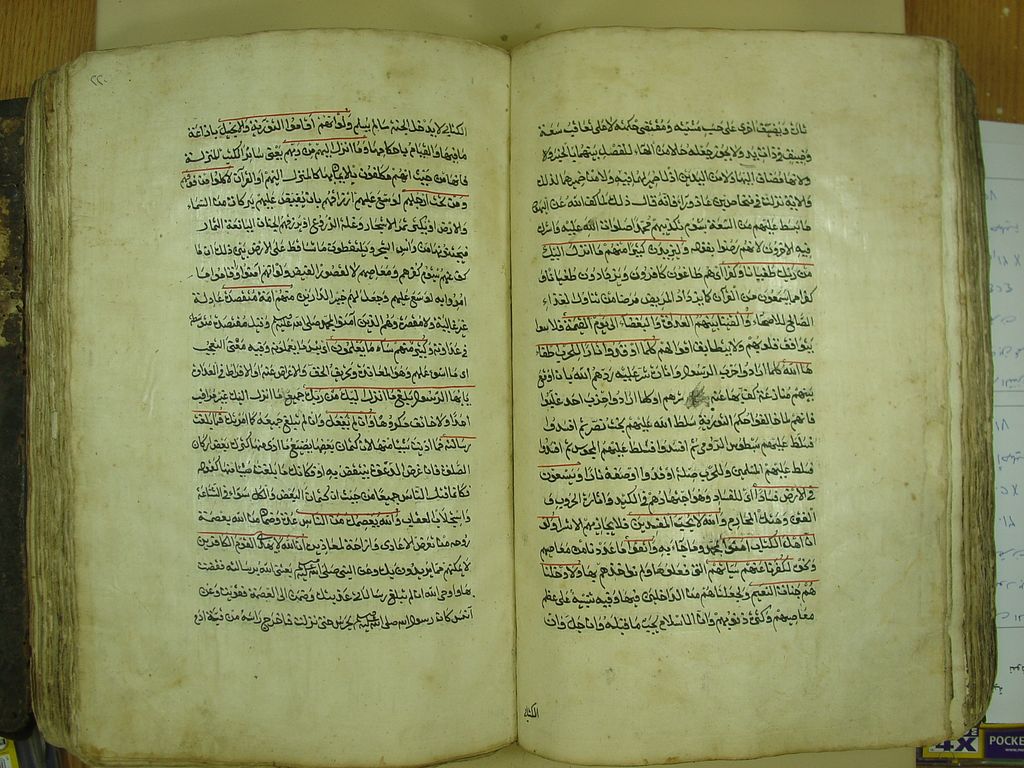 تارة ويقبض اخرى على حسب مشيئته ومقتضى حكمته لا على تعاقب سعة
وضيق في ذات يد ولا يجوز جعله حالا من الهاء للفصل بينهما بالخبر ولا
ولانها مضاف اليها ولا من اليدين اذ لا ضمير لهما فيه ولا من ضميرهما لذلك
والاية نزلت في فنحاص بن عازوراء فانه قال ذلك لما كف الله عن اليهود
ما بسط عليهم من السعة بشوم تكذيبهم محمدا صلوات الله عليه واشرك
فيه الاخرون لانهم رضوا بقوله وليزيدن كثيرا منهم ما انزل اليك
من ربك طغيانا وكفرا اي هم طاغون كافرون ويزدادون طغيانا و
كفرا بما يسمعون من القرآن كما يزداد المريض مرضا من تناول الغذاء
الصالح للاصحاء والقينا بينهم العداوة والبغضاء الى يوم القيمة فلا
يتوافق قلوبهم ولا يتطابق اقوالهم كلما اوقدوا نارا للحرب اطفاء
ها الله كلما ارادوا حرب الرسول واثارة شر عليه ردهم الله بان اوقع
بينهم منازعة كف بها عنه شرهم او كلما ارادوا حرب احد غلبوا
فانهم لما خالفوا حكم التورية سلط الله عليهم بخت نصر ثم افسدوا
فسلط عليهم فطرس الرومي ثم افسدوا فسلط عليهم المجوس ثم افسدوا
فسلط عليهم المسلمين وللحرب صلة اوقدوا او صفة نارا ويسعون
في الارض فسادا اي للفساد وهو اجتهادهم في الكيد واثارة الحروب و
الفتن وهتك المحارم والله لا يحب المفسدين فلا يجازيهم الا شرا ولو
ان اهل الكتاب امنوا بمحمد وما جاء به واتقوا ما عددنا من معاصيهم
ونحوه لكفرنا عنهم سياتهم التي فعلوها ولم نؤاخذهم بها ولادخلنا
هم جنات النعيم ولجعلناهم من الداخلين فيها وفيه تنبيه على عظم
معاصيهم وكثرة ذنوبهم وان الاسلام يجب ما قبله وان جل وان
الكتابي
٢٢٠
الكتابي لا يدخل الجنة ما لم يسلم ولو انهم اقاموا التورية والانجيل باذاعة
ما فيهما والقيام باحكامهما وما انزل اليهم من ربهم يعني سائر الكتب المنزلة
فانها من حيث انهم مكلفون بالايمان بها كالمنزل اليهم او القرآن لاكلوا من فوقهم
ومن تحت ارجلهم لوسع عليهم ارزاقهم بان يفيض عليهم بركات من السماء
والارض او يكثر ثمرة الاشجار وغلة الزروع او يرزقهم الجنان اليانعة الثمار
فيجتنونها من رأس الشجر ويلتقطون ما تساقط على الارض بين ذلك ان ما
كف عنهم بشوم كفرهم ومعاصيهم لا لقصور الفيض ولو انهم امنوا واقاموا ما
امروا به لوسع عليهم وجعل لهم خير الدارين منهم امة مقتصدة عادلة
غير غالية ولا مقصرة وهم الذين امنوا بمحمد صلى الله عليه وسلم وقيل مقتصدة متوسطة
في عداوته وكثير منهم ساء ما يعملون اي بئس ما يعملونه وفيه معنى التعجب
اي ما اسوء عملهم وهو المعاندة وتحريف الحق والاعراض عنه او الافراط في العداوة
يا ايها الرسول بلغ ما انزل اليك من ربك جميع ما انزل اليك غير مراقب
احدا ولا خائف مكروها وان لم تفعل وان لم تبلغ جميعه كما امرتك فما بلغت
رسالته فما اديت شيئا منها لان كتمان بعضها يضيع ما ادي منها كترك بعض اركان
الصلوة فان غرض الدعوة ينتقض به او فكانك ما بلغت شيئا منها كقوله
فكانما قتل الناس جميعا من حيث ان كتمان البعض والكل سواء في الشناعة
واستجلاب العقاب والله يعصمك من الناس عدة وضمان من الله بعصمة
روحه من تعرض الاعادي وازاحة لمعاذيره ان الله لا يهدي القوم الكافرين
لا يمكنهم مما يريدون بك وعن النبي صلى الله عليه وسلم بعثني الله برسالته فضقت
بها ذرعا فاوحى الله ان لم تبلغ رسالتي عذبتك وضمن لي العصمة فقويت وعن
انس كان رسول الله صلى الله عليه وسلم يحرس حتى نزلت فاخرج رأسه من قبة ادم
4X
POCKE